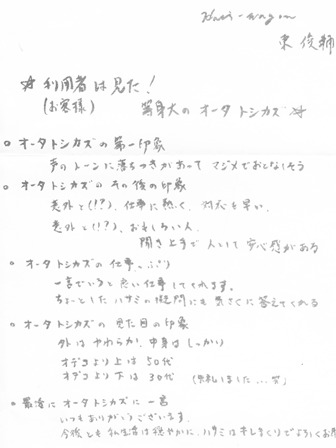 東 俊輔
☆利用者は見た！
(お客様) 等身大のオータトシカズ☆
○オータトシカズの第一印象
声のトーンに落ちつきがあって マジメでおとなしそう
○オータトシカズのその後の印象
意外と(!?)、仕事に熱く、対応も早い。
意外と(!?)、おもしろい人。
聞き上手で人として安心感がある
○オータトシカズの仕事っぷり
一言でいうと良い仕事してくれます。
ちょーっとしたハサミの疑問にも気さくに答えてくれる
○オータトシカズの見た目の印象
外はやわらか、中身はしっかり
オデコより上は50代
オデコより下は30代 (失礼しました…笑)
○最後にオータトシカズに一言
いつもありがとうございます。
今後とも私生活は穏やかに、ハサミはキレキレでよろしくお